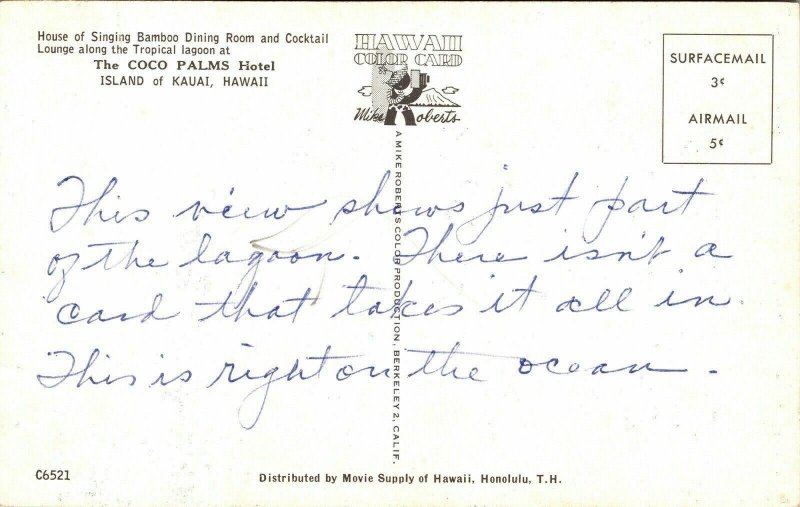 House of Singing Bamboo Dining Room and Cocktail
Lounge along the Tropical lagoon at
The COCO PALMS Hotel
ISLAND of KAUAI, HAWAII
HAWAII
COLOR CARD
Mike Roberts
SURFACEMAIL
3¢
AIRMAIL
5¢
A MIKE ROBERTS COLOR PRODUCTION, BERKELEY 2, CALIF.
This view shows just part
of the lagoon. There isn't a
card that takes it all in.
This is right on the ocean.
C6521
Distributed by Movie Supply of Hawaii, Honolulu, T.H.